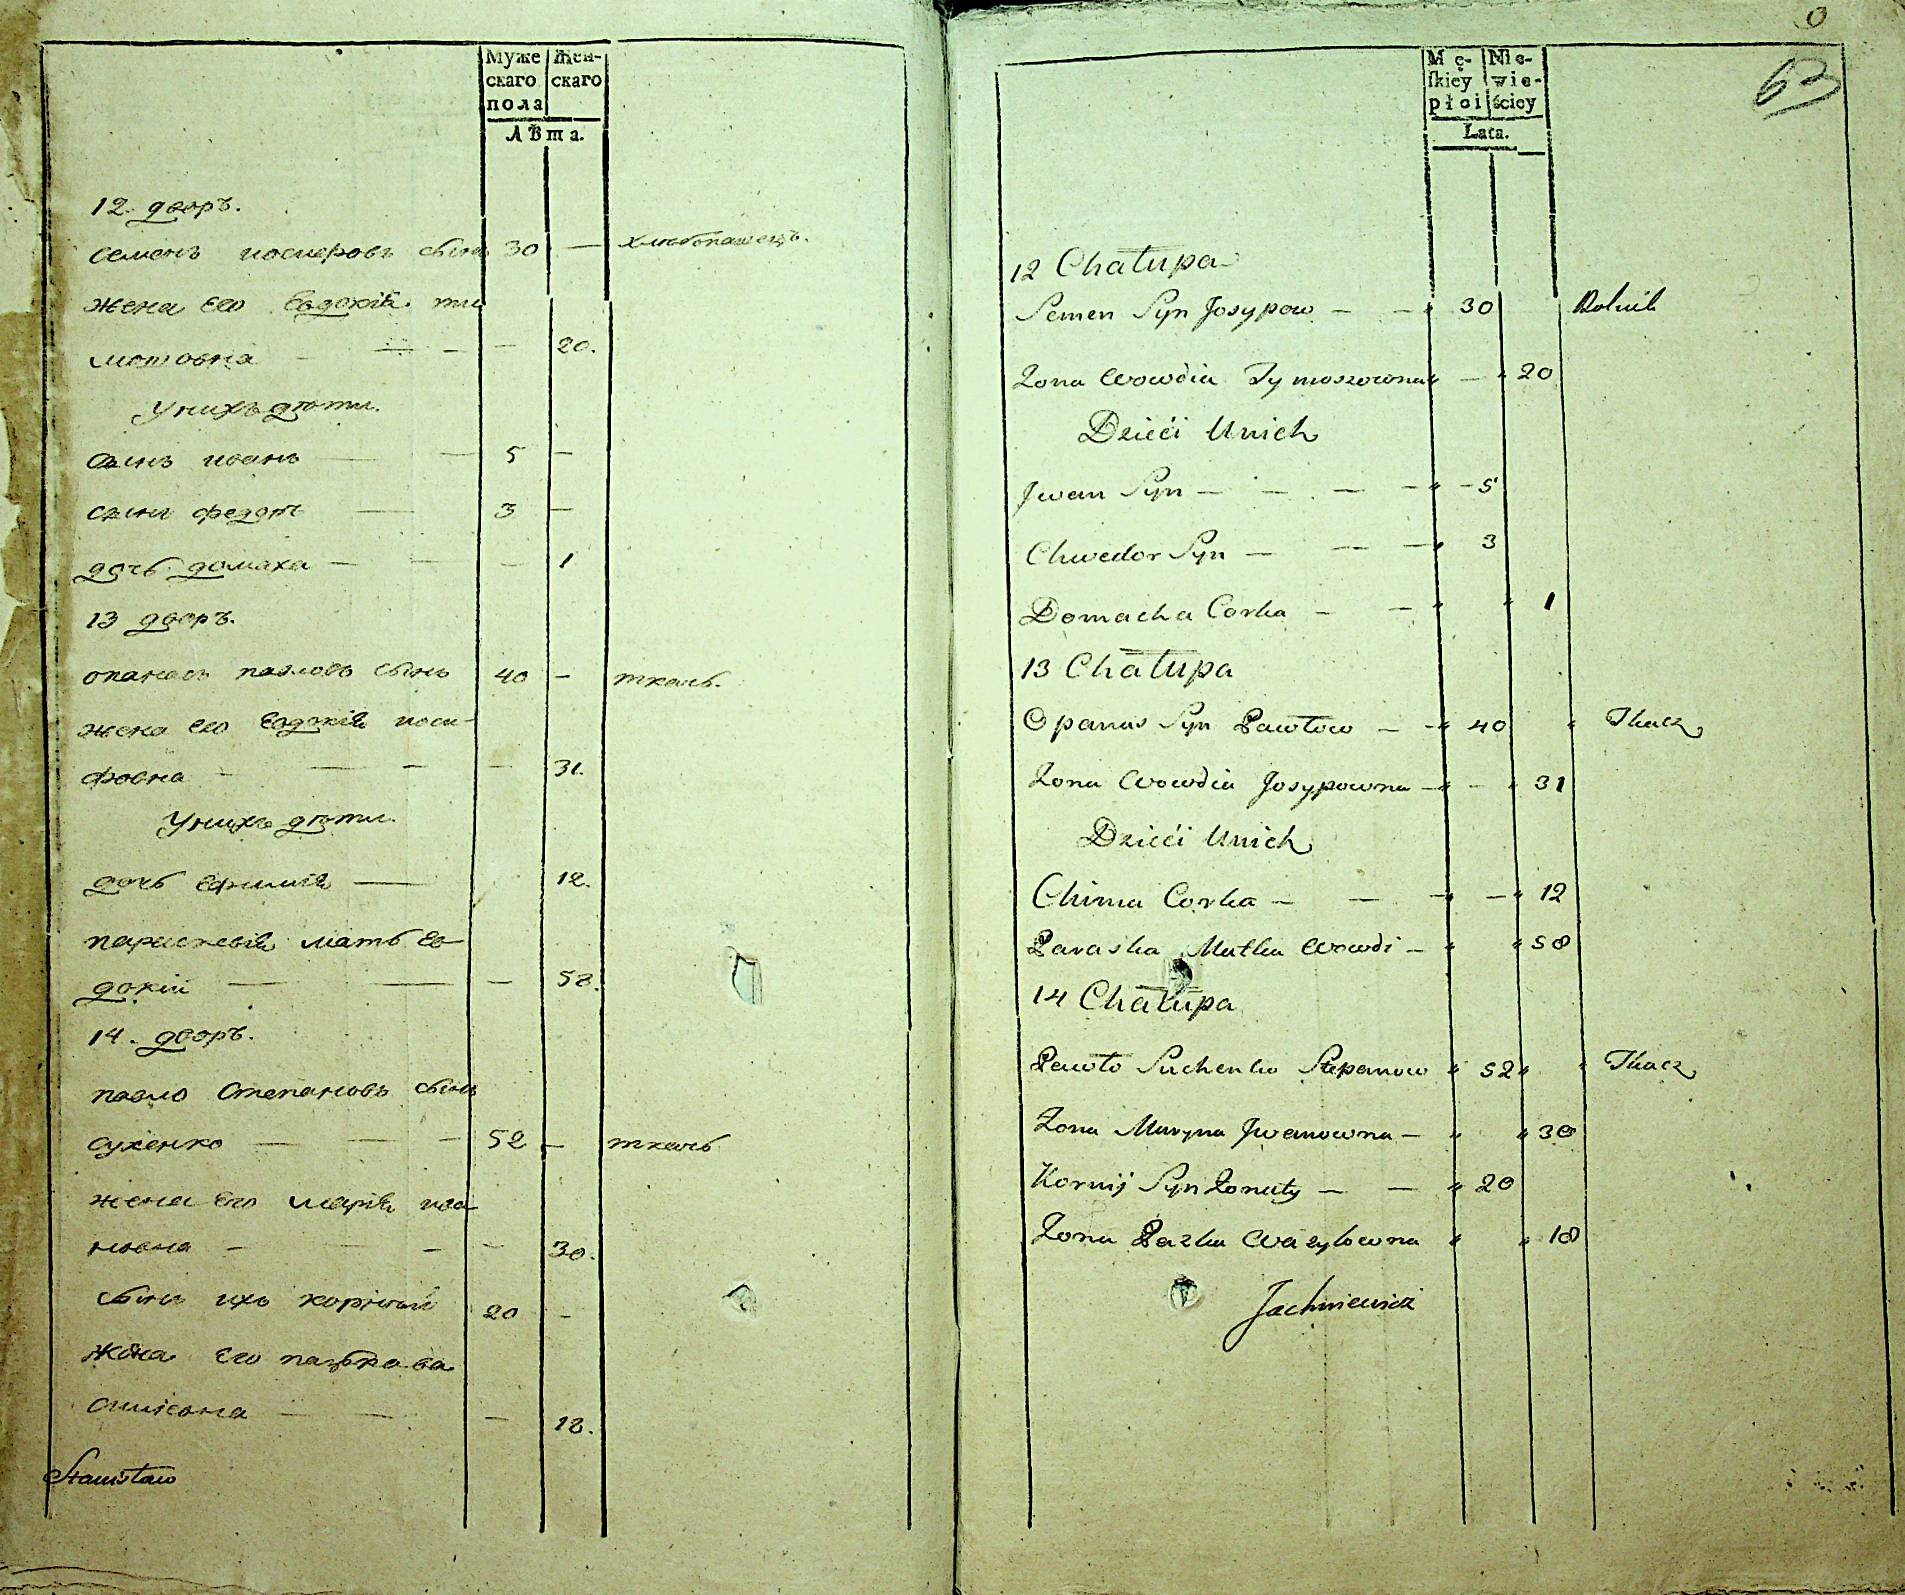 Муже
скаго
пола
Жен-
скаго
Лѣта.
12. дворъ.
семенъ иосиѳовъ сынъ 30 — хлѣбопашецъ.
жена его Евдокія ти
мошовна — — — — 20.
У нихъ дѣти.
сынъ иванъ — — 5 —
сынъ федоръ — 3 —
дочь домаха — — — 1
13 дворъ.
опанасъ павловъ сынъ 40 — ткачь.
жена его Евдокія иоси-
фовна — — — — — 31.
У нихъ дѣти.
дочь Ефимія — 12.
параскевія мать Ев-
докіи — — — 58.
14. дворъ.
павло Степановъ сынъ
сухенко — — — 52 — ткачь
жена Его марія ива
новна — — — — 30.
сынъ ихъ корнѣй 20 —
жена его пазька ва
силіовна — — — 18.
Stanisław
0
63
Mę-
skiey
płci
Nie-
wie-
ściey
Lata.
12 Chałupa
Semen Syn Josypow — — " 30 Rolnik
Zona Wowdia Tymoszowna " — " 20
Dzieći Unich
Jwan Syn — — — — " — 5
Chwedor Syn — — — " 3
Domacha Corka — — " " 1
13 Chałupa
Opanas Syn Pawłow — — " 40 " Tkacz
Zona Wowdia Josypowna — " — " 31
Dzieći Unich
Chima Corka — — — " — " 12
Paraska Matka Wowdi — " " 58
14 Chałupa
Pawło Suchenko Stepanow " 52 " " Tkacz
Zona Maryna Jwanowna — " " 30
Kornij Syn Zonaty — — " 20
Zona Pazka Wazylowna " " 18
Jachniewicz